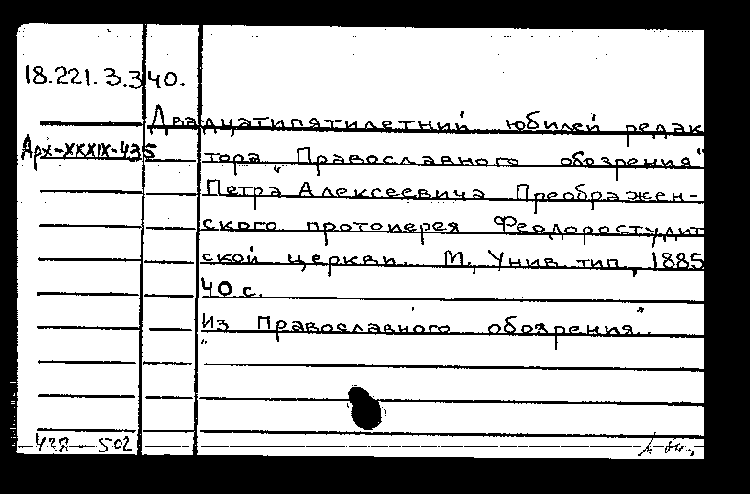 18.221.3.340.
Двадцатипятилетний юбилей редак
Арх-XXXIX-435
тора „Православного обозрения"
Петра Алексеевича Преображен-
ского протоиерея Феодоростудит
ской церкви. М., Унив. тип., 1885
40 с.
Из „Православного обозрения".